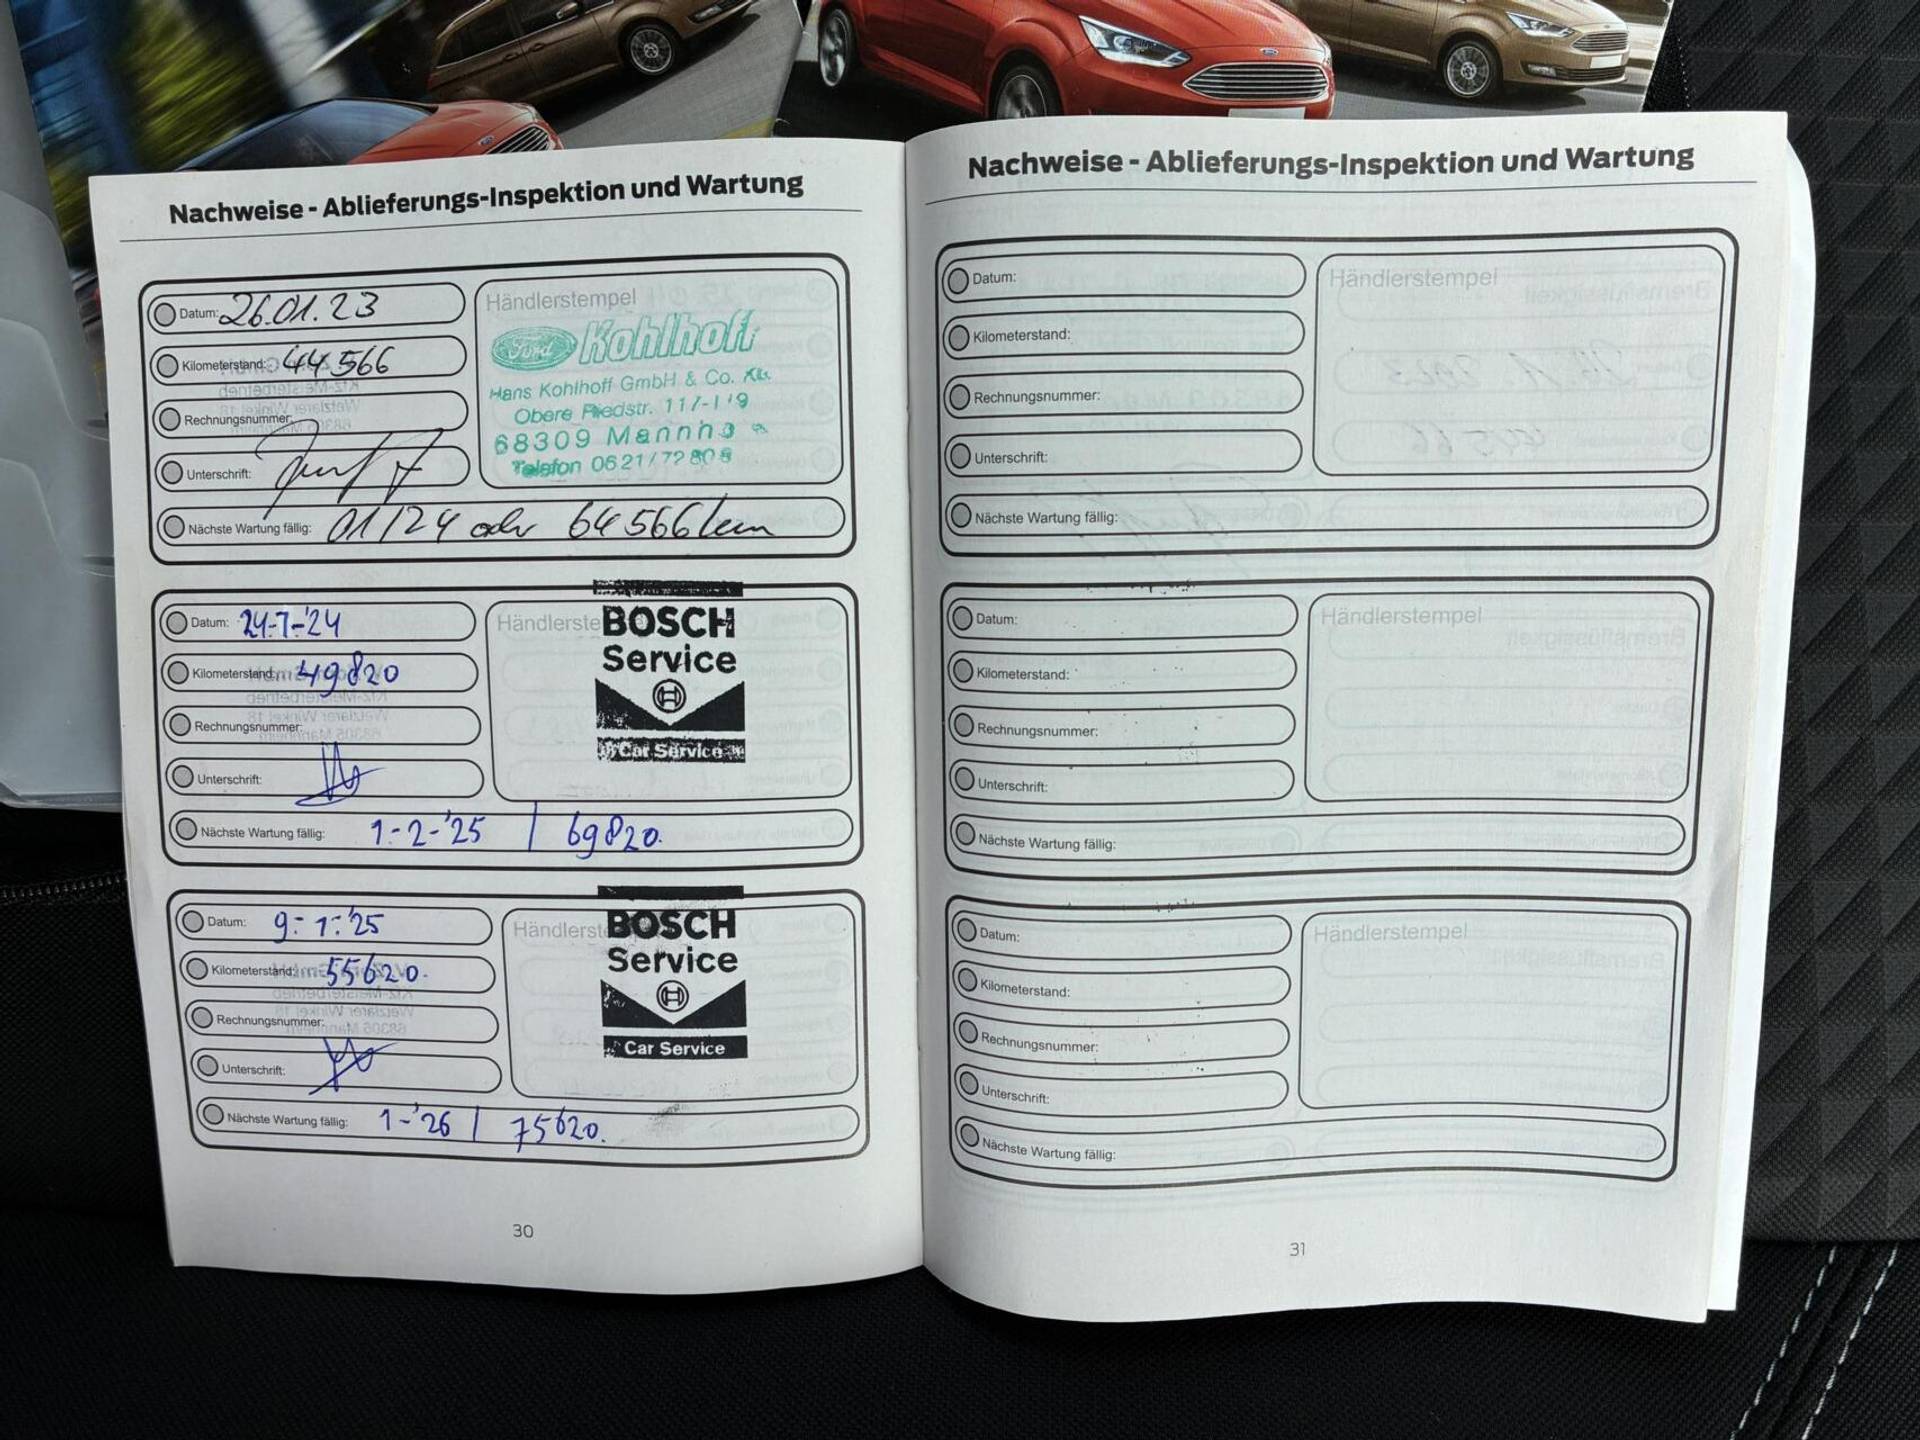 Nachweise - Ablieferungs-Inspektion und Wartung
Datum: 26.01.23
Kilometerstand: 44566
Rechnungsnummer:
Unterschrift:
Nächste Wartung fällig: 01/24 oder 64566 km
Händlerstempel
Ford Kohlhoff
Hans Kohlhoff GmbH & Co.
Obere Riedstr. 117-119
68309
Telefon 0621/72
Datum: 24-7-'24
Kilometerstand: 49820
Rechnungsnummer:
Unterschrift:
Nächste Wartung fällig: 1-2-'25 | 69820.
Händlerste
BOSCH
Service
Car Service
Datum: 9-1-'25
Kilometerstand: 55620.
Rechnungsnummer:
Unterschrift:
Nächste Wartung fällig: 1-'26 | 75620.
Händlerst
BOSCH
Service
Car Service
30
Nachweise - Ablieferungs-Inspektion und Wartung
Datum:
Kilometerstand:
Rechnungsnummer:
Unterschrift:
Nächste Wartung fällig:
Händlerstempel
Datum:
Kilometerstand:
Rechnungsnummer:
Unterschrift:
Nächste Wartung fällig:
Händlerstempel
Datum:
Kilometerstand:
Rechnungsnummer:
Unterschrift:
Nächste Wartung fällig:
Händlerstempel
31